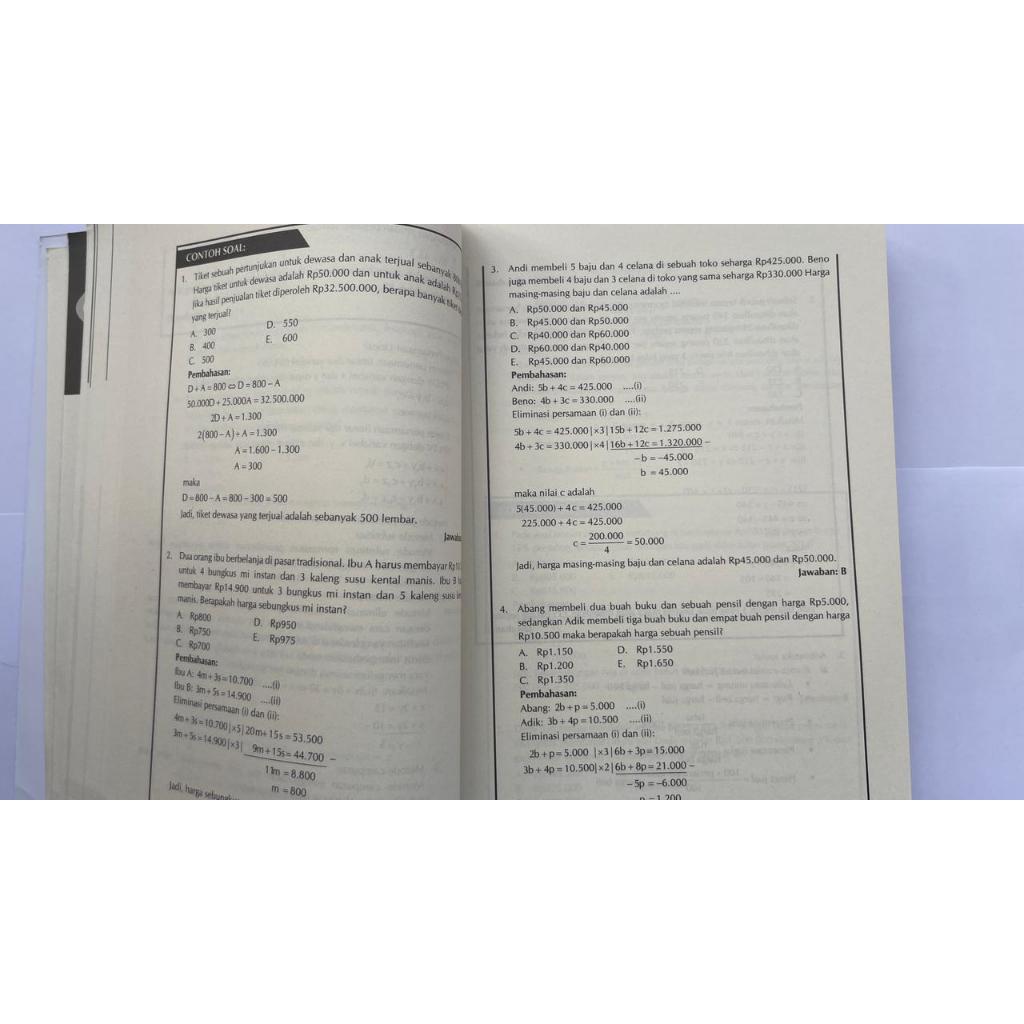 CONTOH SOAL:
1. Tiket sebuah pertunjukan untuk dewasa dan anak terjual sebanyak
Harga tiket untuk dewasa adalah Rp50.000 dan untuk anak adalah
Jika hasil penjualan tiket diperoleh Rp32.500.000, berapa banyak
yang terjual?
A. 300 D. 550
B. 400 E. 600
C. 500
Pembahasan:
D + A = 800 ⇔ D = 800 – A
50.000D + 25.000A = 32.500.000
2D + A = 1.300
2(800 – A) + A = 1.300
A = 1.600 – 1.300
A = 300
maka
D = 800 – A = 800 – 300 = 500
Jadi, tiket dewasa yang terjual adalah sebanyak 500 lembar.
2. Dua orang ibu berbelanja di pasar tradisional. Ibu A harus membayar
untuk 4 bungkus mi instan dan 3 kaleng susu kental manis. Ibu B
membayar Rp14.900 untuk 3 bungkus mi instan dan 5 kaleng susu
manis. Berapakah harga sebungkus mi instan?
A. Rp800 D. Rp950
B. Rp750 E. Rp975
C. Rp700
Pembahasan:
Ibu A: 4m + 3s = 10.700 ....(i)
Ibu B: 3m + 5s = 14.900 ....(ii)
Eliminasi persamaan (i) dan (ii):
4m + 3s = 10.700 |x5| 20m + 15s = 53.500
3m + 5s = 14.900 |x3| 9m + 15s = 44.700 –
11m = 8.800
m = 800
Jadi, harga
3. Andi membeli 5 baju dan 4 celana di sebuah toko seharga Rp425.000. Beno
juga membeli 4 baju dan 3 celana di toko yang sama seharga Rp330.000 Harga
masing-masing baju dan celana adalah ....
A. Rp50.000 dan Rp45.000
B. Rp45.000 dan Rp50.000
C. Rp40.000 dan Rp60.000
D. Rp60.000 dan Rp40.000
E. Rp45.000 dan Rp60.000
Pembahasan:
Andi: 5b + 4c = 425.000 ....(i)
Beno: 4b + 3c = 330.000 ....(ii)
Eliminasi persamaan (i) dan (ii):
5b + 4c = 425.000 |x3| 15b + 12c = 1.275.000
4b + 3c = 330.000 |x4| 16b + 12c = 1.320.000 –
–b = –45.000
b = 45.000
maka nilai c adalah
5(45.000) + 4c = 425.000
225.000 + 4c = 425.000
c = 200.000/4 = 50.000
Jadi, harga masing-masing baju dan celana adalah Rp45.000 dan Rp50.000.
Jawaban: B
4. Abang membeli dua buah buku dan sebuah pensil dengan harga Rp5.000,
sedangkan Adik membeli tiga buah buku dan empat buah pensil dengan harga
Rp10.500 maka berapakah harga sebuah pensil?
A. Rp1.150 D. Rp1.550
B. Rp1.200 E. Rp1.650
C. Rp1.350
Pembahasan:
Abang: 2b + p = 5.000 ....(i)
Adik: 3b + 4p = 10.500 ....(ii)
Eliminasi persamaan (i) dan (ii):
2b + p = 5.000 |x3| 6b + 3p = 15.000
3b + 4p = 10.500 |x2| 6b + 8p = 21.000 –
–5p = –6.000
p = 1.200